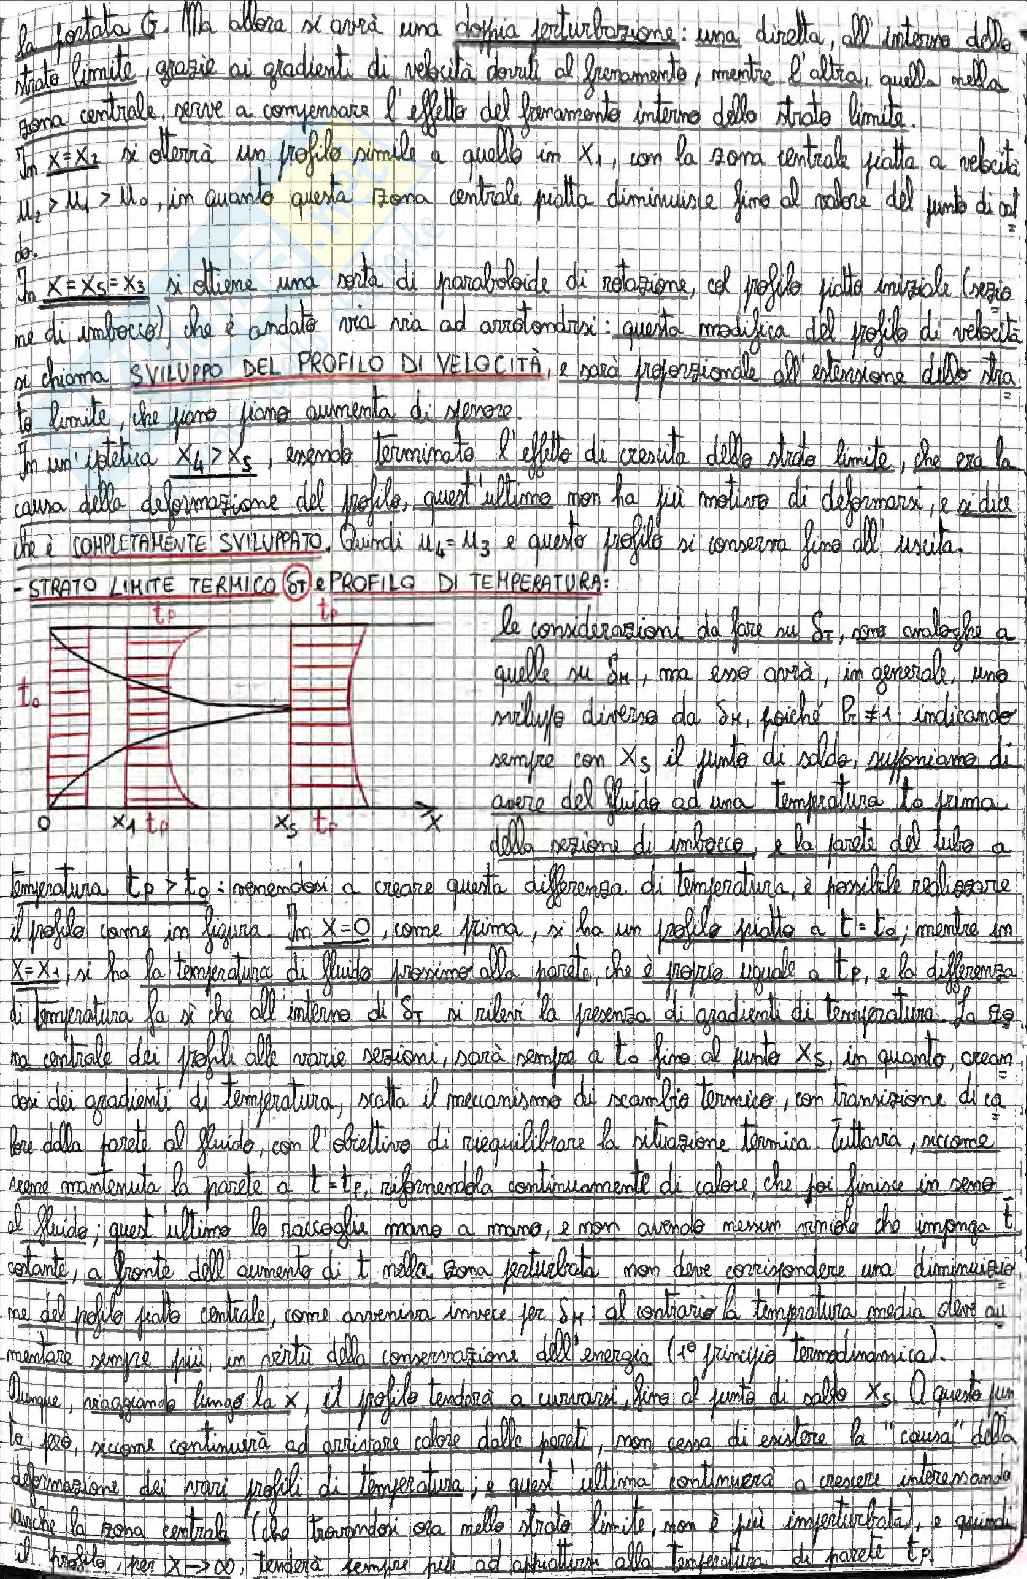 la portata G. Ma allora si avrà una doppia perturbazione: una diretta, all'interno dello
strato limite, grazie ai gradienti di velocità dovuti al frenamento, mentre l'altra, quella nella
zona centrale, serve a compensare l'effetto del frenamento interno dello strato limite.
In x=x₂ si otterrà un profilo simile a quello in x₁, con la zona centrale piatta a velocità
u₂ > u₁ > u₀, in quanto questa zona centrale piatta diminuisce fino al valore del punto di sal
do.
In x=xs=x₃ si ottiene una sorta di paraboloide di rotazione, col profilo piatto iniziale (sezio
ne di imbocco) che è andato via via ad arrotondarsi: questa modifica del profilo di velocità
si chiama SVILUPPO DEL PROFILO DI VELOCITÀ, e sarà proporzionale all'estensione dello stra
to limite, che piano piano aumenta di spessore.
In un'ipotetica x₄ > xs, essendo terminato l'effetto di crescita dello strato limite, che era la
causa della deformazione del profilo, quest'ultimo non ha più motivo di deformarsi, e si dice
che è COMPLETAMENTE SVILUPPATO. Quindi u₄=u₃ e questo profilo si conserva fino all'uscita.
- STRATO LIMITE TERMICO δT e PROFILO DI TEMPERATURA:
tp tp
t₀
0 x₁ tp xs tp x
le considerazioni da fare su δT, sono analoghe a
quelle su δM, ma esso avrà, in generale, uno
sviluppo diverso da δM, poiché Pr ≠ 1: indicando
sempre con xs il punto di saldo, supponiamo di
avere del fluido ad una temperatura t₀ prima
della sezione di imbocco, e la parete del tubo a
temperatura tp > t₀: venendosi a creare questa differenza di temperatura, è possibile realizzare
il profilo come in figura. In x=0, come prima, si ha un profilo piatto a t=t₀; mentre in
x=x₁, si ha la temperatura di fluido prossimo alla parete, che è proprio uguale a tp, e la differenza
di temperatura fa sì che all'interno di δT si rilevi la presenza di gradienti di temperatura. La zo
na centrale dei profili alle varie sezioni, sarà sempre a t₀ fino al punto xs, in quanto, crean
dosi dei gradienti di temperatura, scatta il meccanismo di scambio termico, con transizione di ca
lore dalla parete al fluido, con l'obiettivo di riequilibrare la situazione termica. Tuttavia, siccome
viene mantenuta la parete a t=tp, rifornendola continuamente di calore, che poi finisce in seno
al fluido; quest'ultimo lo raccoglie mano a mano, e non avendo nessun vincolo che imponga t̄
costante, a fronte dell'aumento di t nella zona perturbata non deve corrispondere una diminuzio
ne del profilo piatto centrale, come avveniva invece per δM: al contrario la temperatura media deve au
mentare sempre più, in virtù della conservazione dell'energia (1° principio termodinamica).
Dunque, viaggiando lungo la x, il profilo tenderà a curvarsi, fino al punto di saldo xs. A questo pun
to però, siccome continuerà ad arrivare calore dalle pareti, non cessa di esistere la "causa" della
deformazione dei vari profili di temperatura; e quest'ultima continuerà a crescere interessando
anche la zona centrale (che trovandosi ora nello strato limite, non è più imperturbata), e quindi
il profilo, per x→∞, tenderà sempre più ad appiattirsi alla temperatura di parete tp.